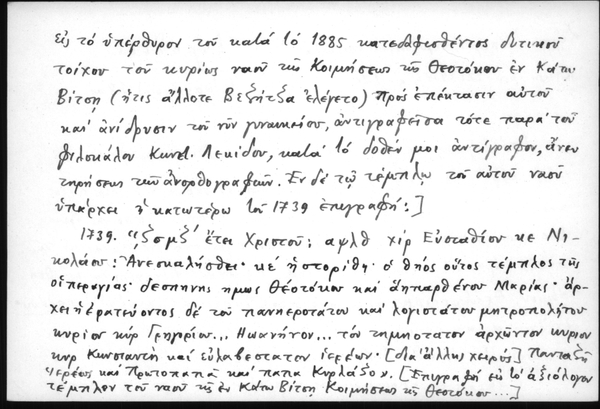 εἰς τό ὑπέρθυρον τοῦ κατά τό 1885 κατεδαφισθέντος δυτικοῦ
τοίχου τοῦ κυρίως ναοῦ τῆς Κοιμήσεως τῆς Θεοτόκου ἐν Κάτω
Βίτσῃ (ἥτις ἄλλοτε Βεζήτζα ἐλέγετο) πρός ἐπέκτασιν αὐτοῦ
καί ἀνίδρυσιν τοῦ νῦν γυναικείου, ἀντιγραφεῖσα τότε παρά τοῦ
φιλοκάλου Κωνστ. Λεκίδου, κατά τό δοθέν μοι ἀντίγραφον, ἄνευ
τηρήσεως τῶν ἀνορθογραφιῶν. Ἐν δέ τῷ τέμπλῳ τοῦ αὐτοῦ ναοῦ
ὑπάρχει ἡ κατωτέρω τοῦ 1739 ἐπιγραφή:]
1739. "ζσμζ' ἔτει Χριστοῦ; αψλθ χίρ Εὐσταθίου κε Νι-
κολάου: Ἀνεσκαλήσθει· κέ ἡστορίθη· ὁ θηός οὗτος τέμπλος τῆς
οἱπεραγίας· δεσπηνης ημως Θέοτόκου καί ἀηπαρθένου Μαρίας· ἀρ-
χειἡερατεύοντος δέ τοῦ πανηεροτάτου καί λογιοτάτου μητροπολήτου
κυρίου κύρ Γρηγορίου... Ηωανήνον... τόν τημηοτατον ἀρχῶντον κυριου
κυρ Κωνσταντή καί εὐλαβεστατον ἱερέων· [διά ἄλλης χειρός] Πανταζῆ
ἡερέως καί Πρωτοπαπᾶ καί παπα Κυρλάδον. [Ἐπιγραφή εἰς τό ἀξιόλογον
τέμπλον τοῦ ναοῦ τῆς ἐν Κάτω Βίτσῃ Κοιμήσεως τῆς Θεοτόκου...]